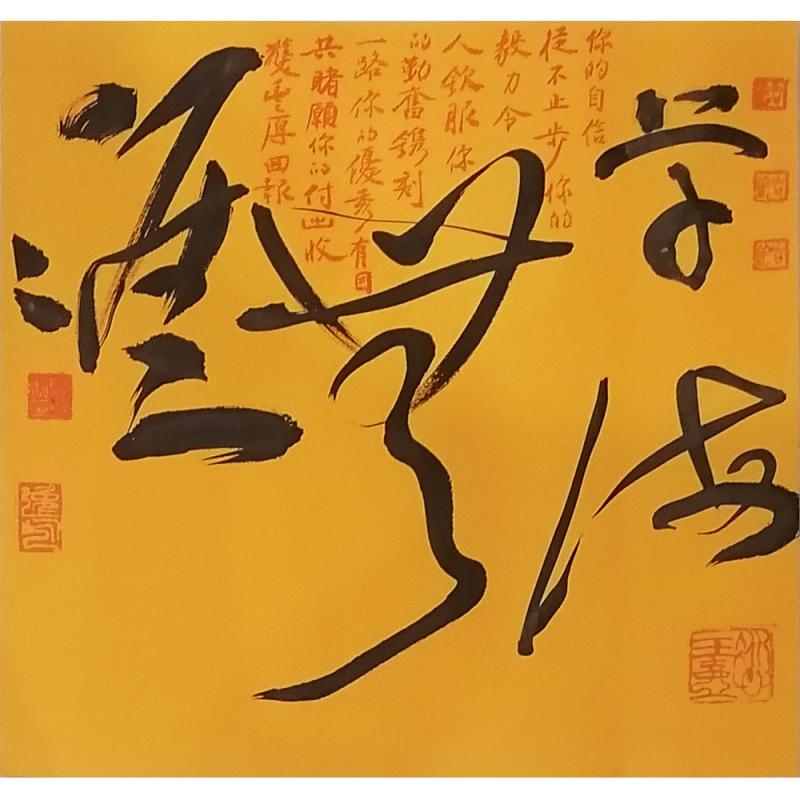 学海
無
涯
你的自信
從不止步你的
毅力令
人欽服你
的勤奮鐫刻
一路你的優秀人有目
共睹願你的付出收
獲厚回報